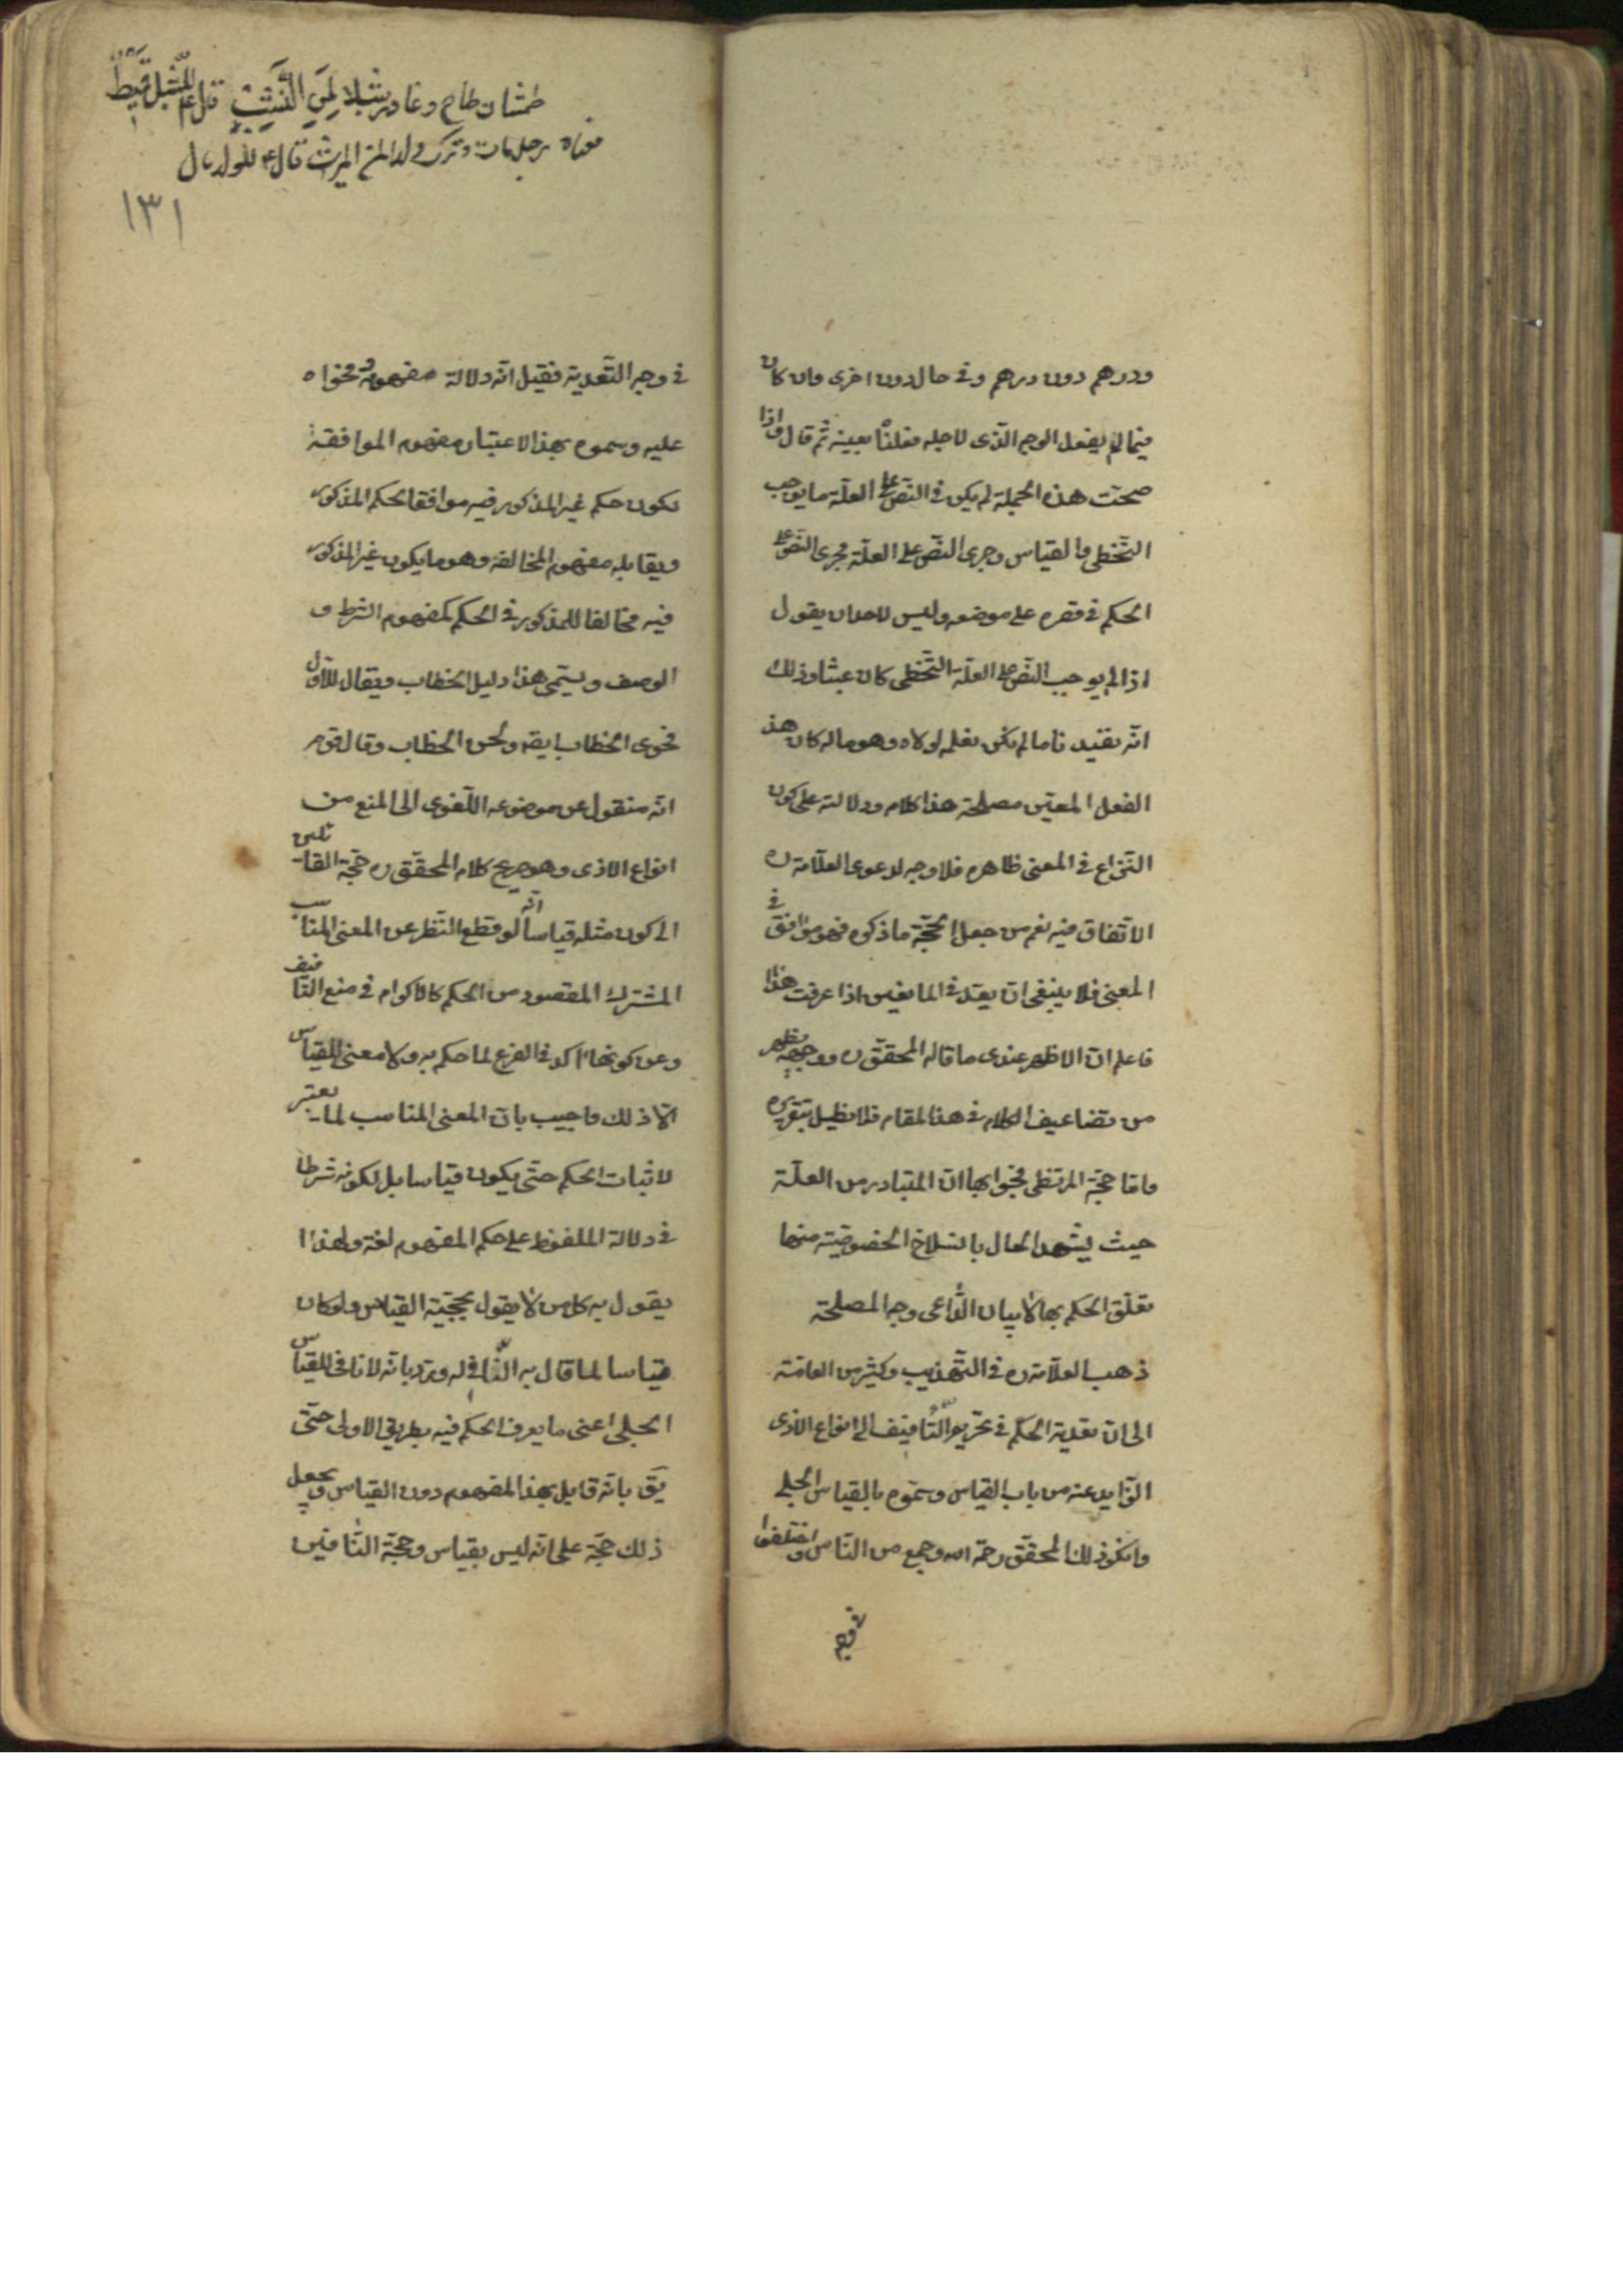 ودرهم دون درهم وفى حال دون اخرى وان كان
فيما لم يفعل الوجه الذى لاجله فعلنا بعينه ثم قال واذا
صحت هذه الجملة لم يكن فى النص على العلة ما يوجب
التخطى والقياس وجرى النص على العلة مجرى النص على
الحكم فى قصره على موضعه وليس لاحد ان يقول
اذا لم يوجب النص على العلة التخطى كان عبثا وذلك
انه يفيدنا ما لم نكن نعلمه لولاه وهو ما له كان هذا
الفعل المعين مصلحة هذا كلامه ودلالته على كون
النزاع فى المعنى ظاهره فلا وجه لدعوى العلامة ره
الاتفاق فيه نعم من جعل الحجة ما ذكوه فهو موافق فى
المعنى فلا ينبغى ان يعد فى المانعين اذا عرفت هذا
فاعلم ان الاظهر عندى ما قاله المحقق ره ووجهه يظهر
من تضاعيف الكلام فى هذا المقام فلا نطيل بتقريره
واما حجة المرتضى فجوابها ان المتبادر من العلة
حيث يشهد الحال بانسلاخ الخصوصية منها
تعلق الحكم بها لا بيان الداعى ووجه المصلحة
ذهب العلامة ره فى التهذيب وكثير من العامة
الى ان تعدية الحكم فى تحريم التافيف الى انواع الاذى
الزايد عنه من باب القياس وسموه بالقياس الجلى
وانكر ذلك المحقق رحمه الله وجمع من الناس واختلفوا
فى وجه
طمشان طاح وغادر شبلا
معناه رجل مات وترك ولدا لمن الميراث قال ع للولد مال
١٣١
فى وجه التعدية فقيل انه دلالة مفهومه وفحواه
عليه وسموه بهذا الاعتبار مفهوم الموافقة
لكون حكم غير المذكور فيه موافقا لحكم المذكور
ويقابله مفهوم المخالفة وهو ما يكون غير المذكور
فيه مخالفا للمذكور فى الحكم كمفهوم الشرط و
الوصف ويسمى هذا دليل الخطاب ويقال للاول
فحوى الخطاب ايضه ولحن الخطاب وقال قوم
انه منقول عن موضوعه اللغوى الى المنع من
انواع الاذى وهو صريح كلام المحقق ره حجة القائلين
الى كون مثله قياسا انه لو قطع النظر عن المعنى المناسب
المشترك المقصود من الحكم كالاكرام فى منع التافيف
وعن كونها اكد فى الفرع لما حكم به ولا معنى للقياس
الا ذلك واجيب بان المعنى المناسب لم يعتبر
لاثبات الحكم حتى يكون قياسا بل لكونه شرطا
فى دلالة الملفوظ على حكم المفهوم لغة ولهذا
يقول به كل من لا يقول بحجية القياس ولو كان
قياسا لما قال به النافى له ورد بانه لا نافى للقياس
الجلى اعنى ما يعرف الحكم فيه بطريق الاولى حتى
يق بانه قايل بهذا المفهوم دون القياس ويجعل
ذلك حجة على انه ليس بقياس وحجة النافين